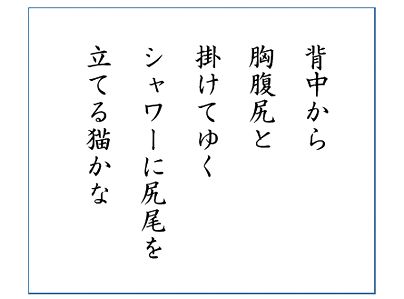 背中から
胸腹尻と
掛けてゆく
シャワーに尻尾を
立てる猫かな